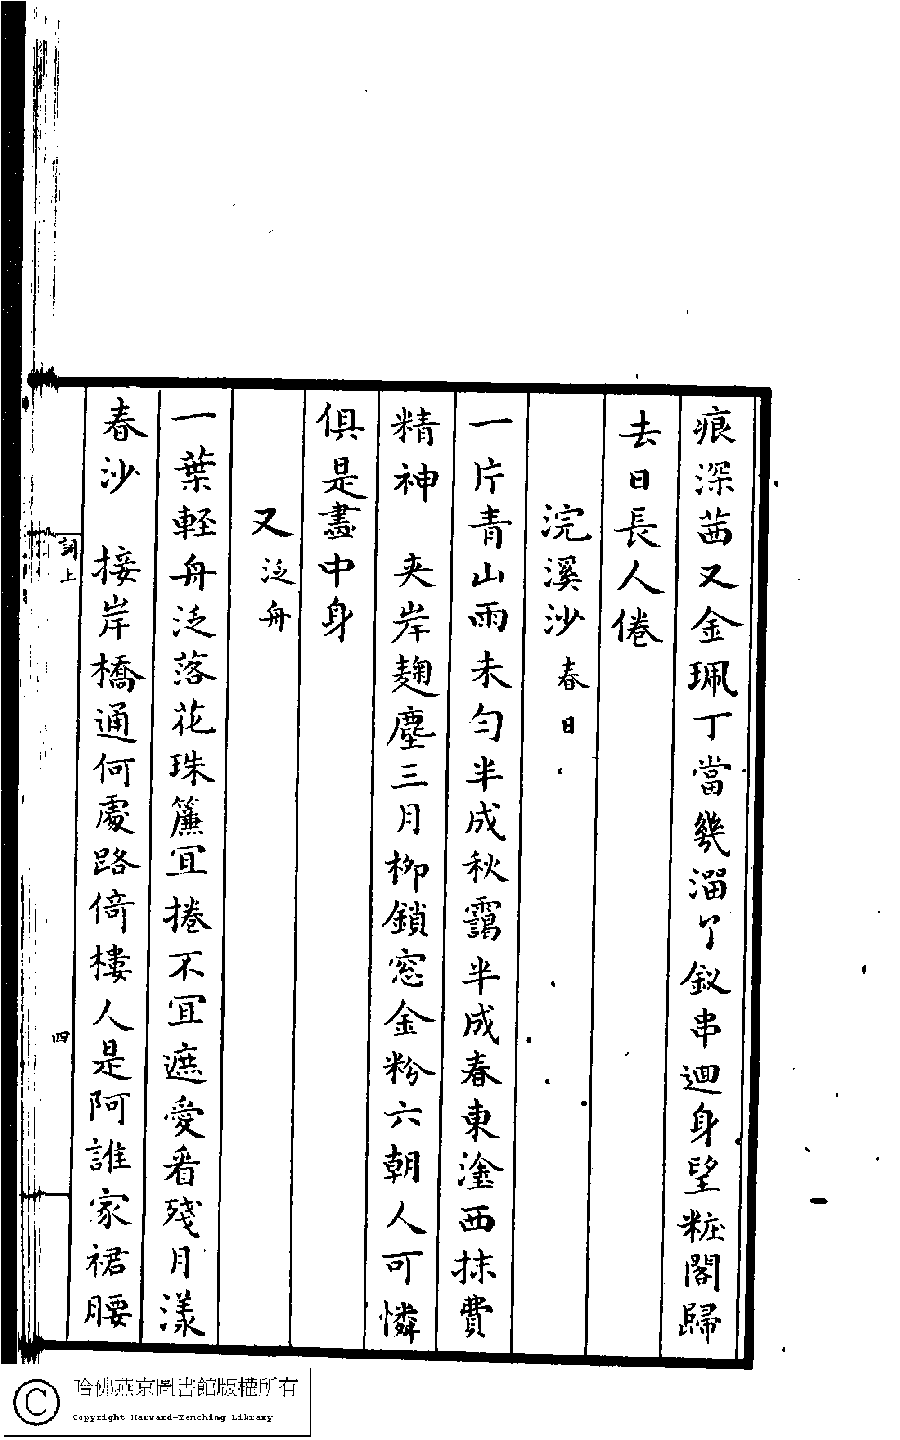 痕深茜又金珮丁當幾溜了釵串迴身望粧閣歸
去日長人倦
浣溪沙 春日
一片青山雨未勻半成秋靄半成春東塗西抹費
精神 夾岸麹塵三月柳鎖窓金粉六朝人可憐
俱是畵中身
又 泛舟
一葉輕舟泛落花珠簾宜捲不宜遮愛看殘月漾
春沙 接岸橋通何處路倚樓人是阿誰家裙腰
詞上
四
哈佛燕京圖書館版權所有
Copyright Harvard-Yenching Library